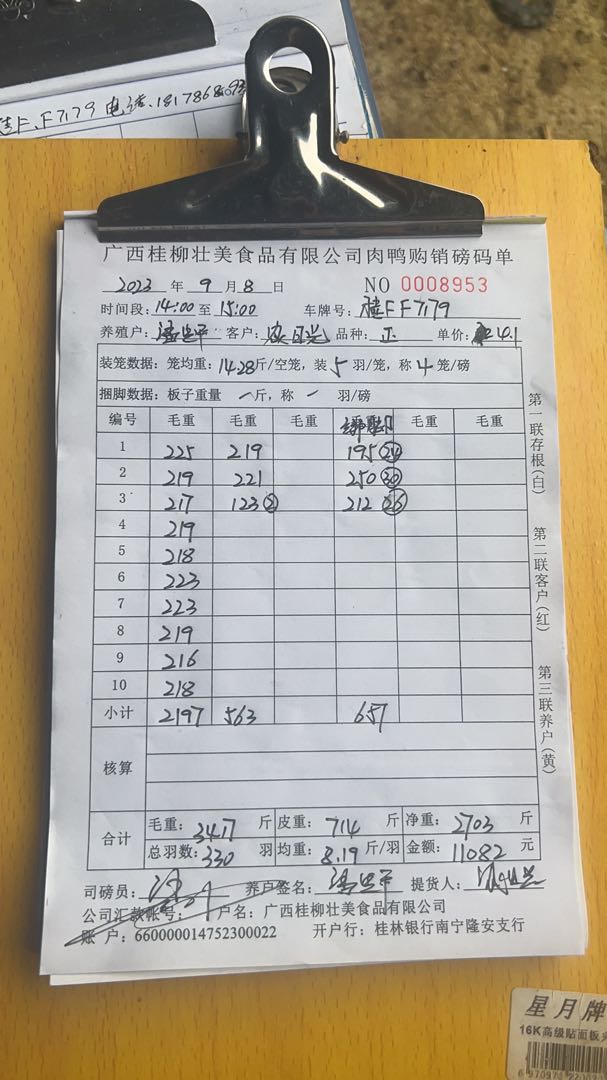 桂F.F7179 电话.1817868
广西桂柳壮美食品有限公司肉鸭购销磅码单
2023 年 9 月 8 日 NO 0008953
时间段: 14:00 至 15:00 车牌号: 桂FF7179
养殖户: 客户: 品种: 正 单价: 4.1
装笼数据: 笼均重: 14.28 斤/空笼, 装 5 羽/笼, 称 4 笼/磅
捆脚数据: 板子重量 一 斤, 称 一 羽/磅
编号 毛重 毛重 毛重 绑脚 毛重 毛重
1 225 219 195 24
2 219 221 250 30
3 217 123 2 212 26
4 219
5 218
6 223
7 223
8 219
9 216
10 218
小计 2197 563 657
核算
合计 毛重: 3417 斤 皮重: 714 斤 净重: 2703 斤
总羽数: 330 羽 均重: 8.19 斤/羽 金额: 11082 元
司磅员: 养户签名: 提货人:
公司汇款账号: 户名: 广西桂柳壮美食品有限公司
账 户: 660000014752300022 开户行: 桂林银行南宁隆安支行
第一联存根(白)
第二联客户(红)
第三联养户(黄)
星月牌
16K高级贴面板夹